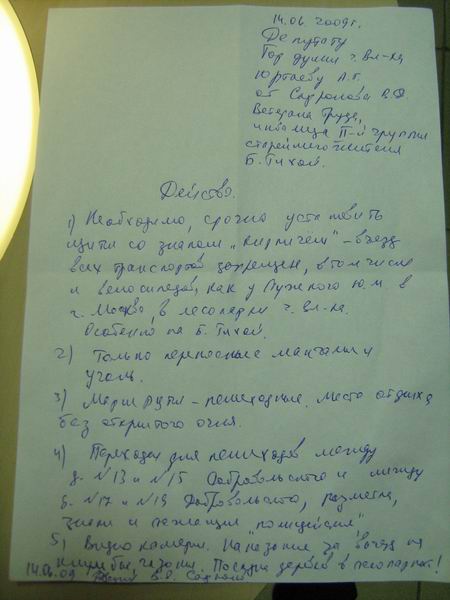 14.06 2009г.
Депутату
Гор думы г. Вл-ка
Юртаеву А.Г.
от В.Ф.
Ветерана Труда,
инвалида II-й группы
старейшего жителя
Б. Тихой.
Действо.
1) Необходимо, срочно установить
щиты со знаком „кирпичем" – въезд
всех транспортов запрещен, в том числе
и велосипедов, как у Лужкого Ю.М в
г. Москва, в лесопарки г. Вл-ка.
Особенно на Б. Тихой.
2) Только переносные мангалы и
уголь.
3) Маршруты – пешеходные. Места отдыха
без открытого огня.
4) Переходы для пешеходов между
д. №13 и №15 Добровольского и между
д. №17 и №19 Добровольского, разметка,
знаки и лежащий "полицейский"
5) Видео камеры. Наказание за въезд на
клумбы, газоны. Посадка деревов в лесопарках!
14.06.09 В.Ф.